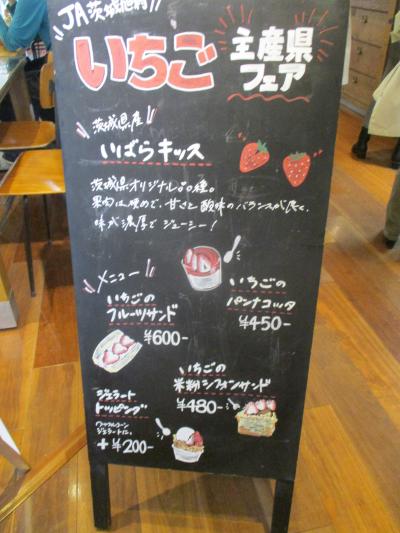 JA茨城旭村
いちご
主産県
フェア
茨城県産
いばらキッス
茨城県オリジナル品種。
果肉は硬めで、甘さと酸味のバランスが良く、
味が濃厚でジューシー！
メニュー
いちごの
フルーツサンド
¥600-
いちごの
パンナコッタ
¥450-
いちごの
米粉シフォンサンド
¥480-
ジェラート
トッピング
ワッフルコーン
ジェラートに、
+¥200-